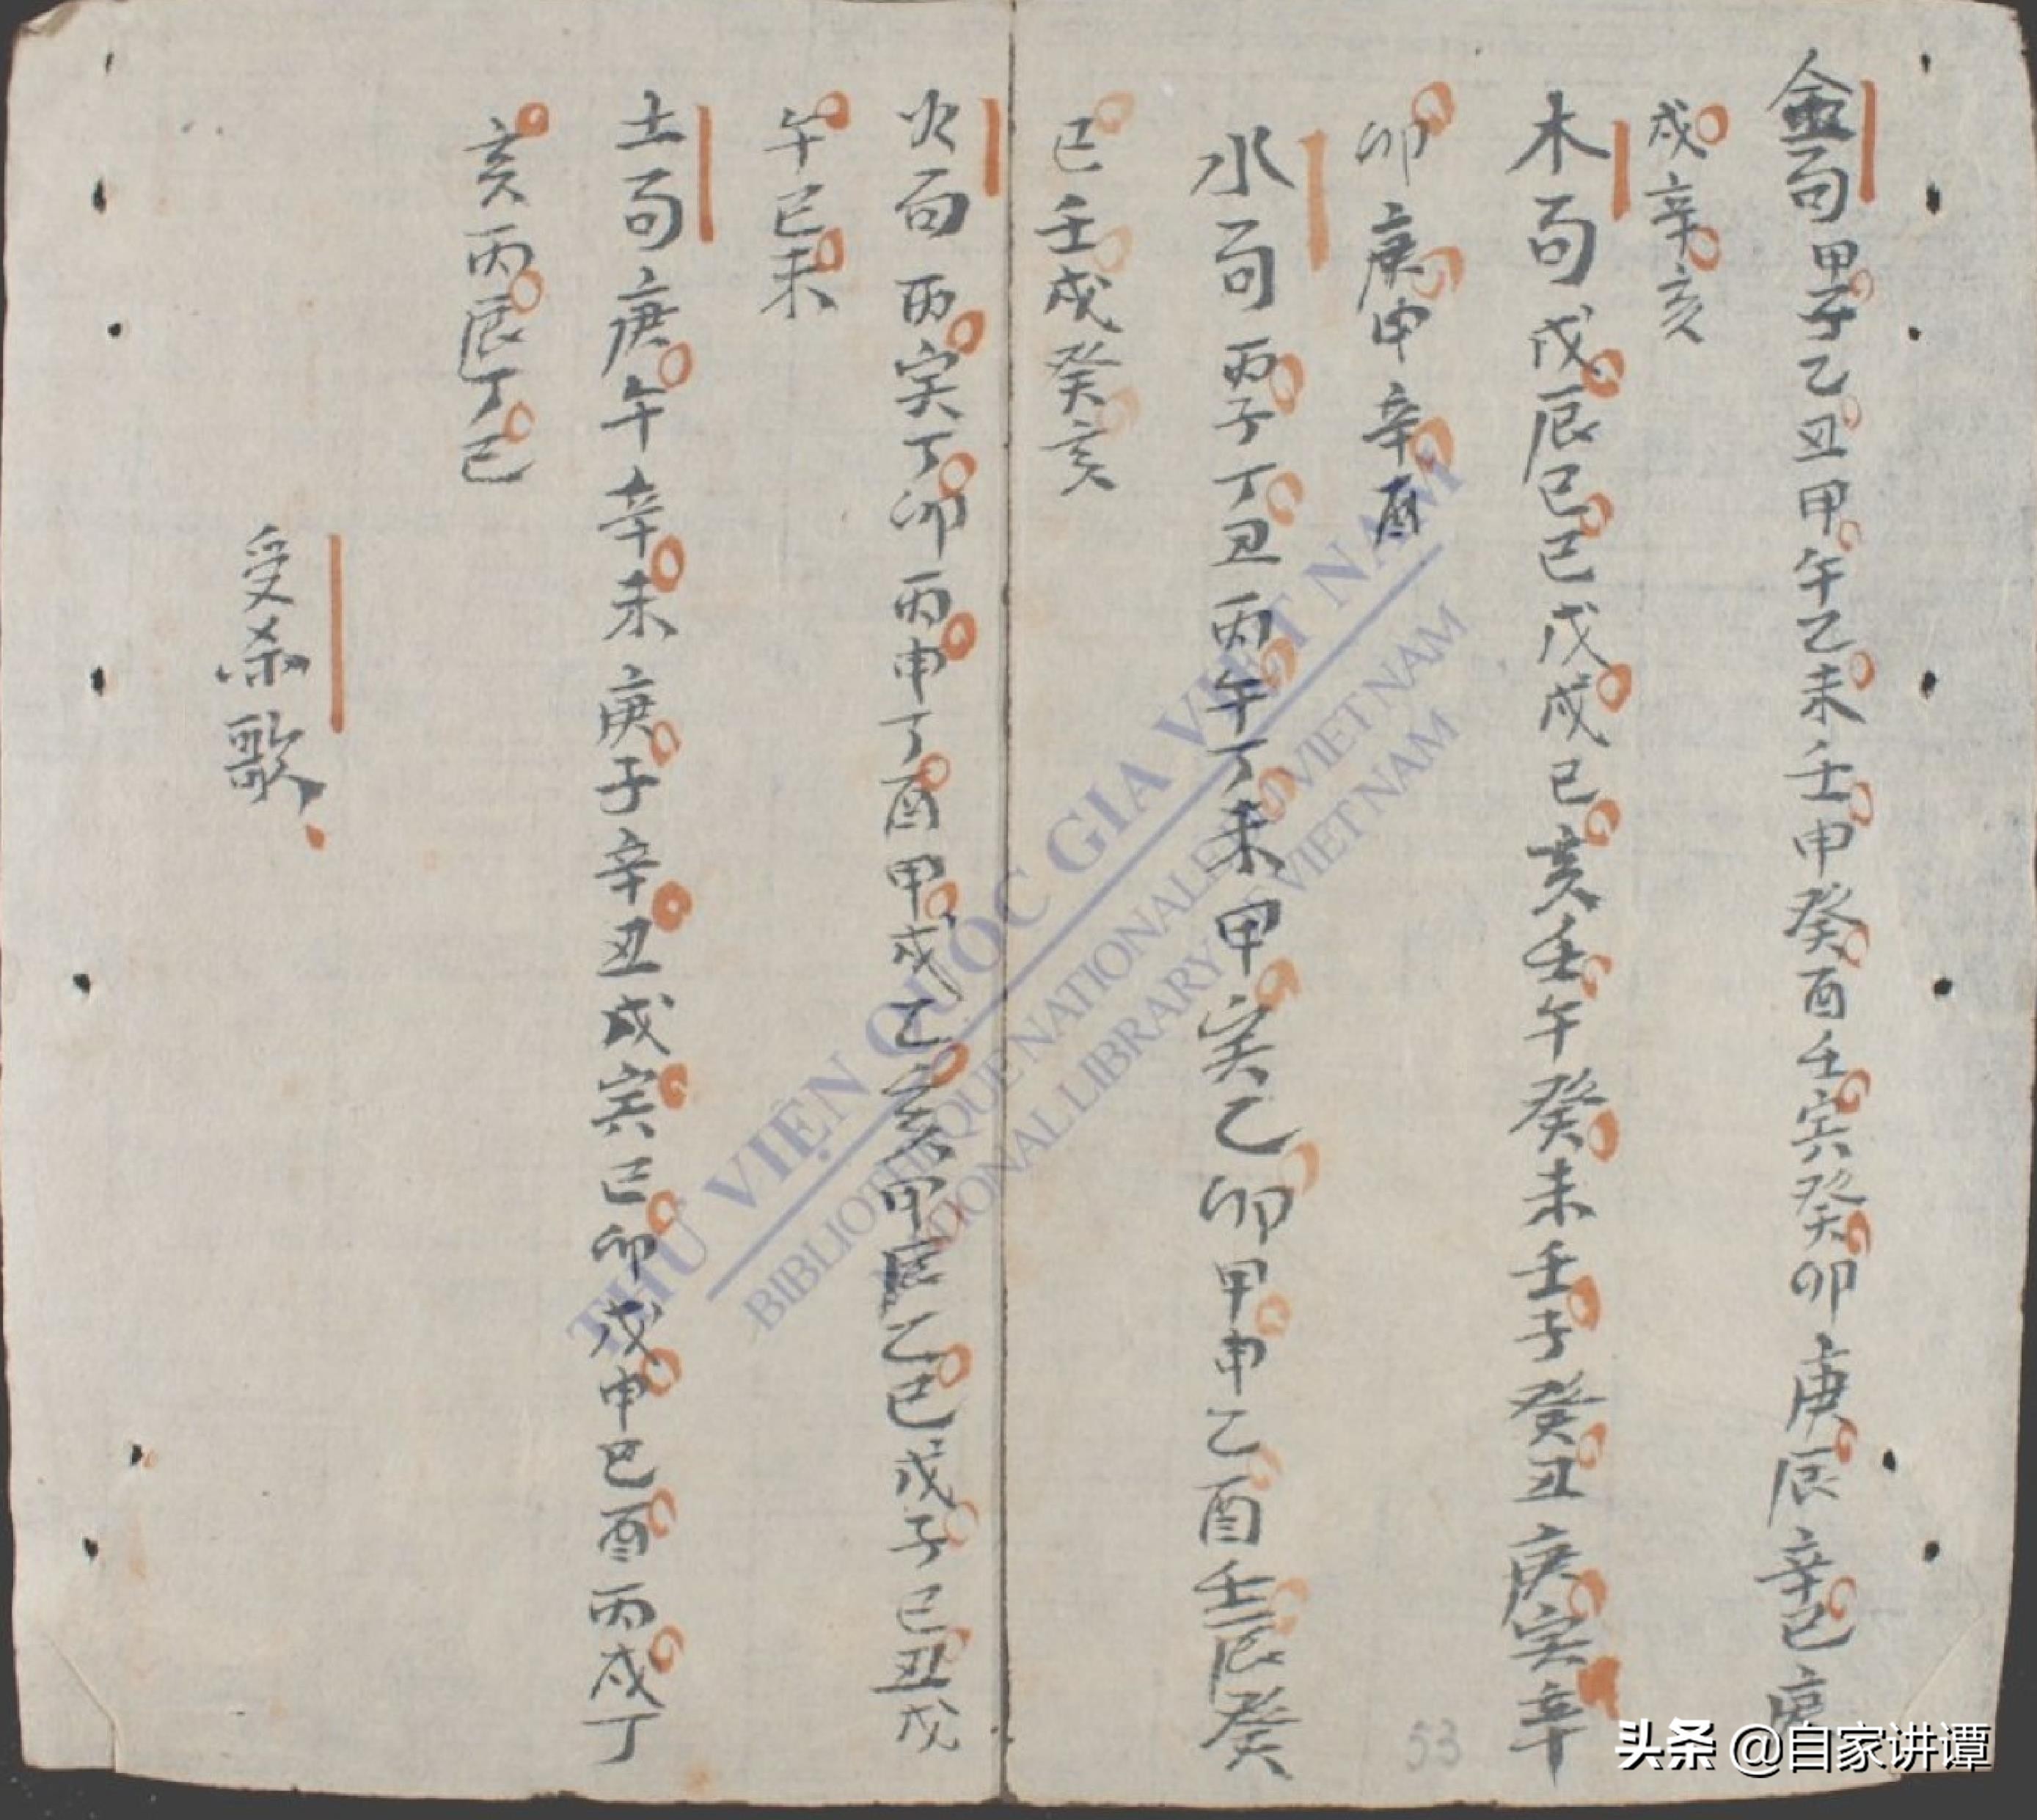 金旬甲子乙丑甲午乙未壬申癸酉壬寅癸卯庚辰辛巳庚
戌辛亥
木旬戊辰己巳戊戌己亥壬午癸未壬子癸丑庚寅辛
卯庚申辛酉
水旬丙子丁丑丙午丁未甲寅乙卯甲申乙酉壬辰癸
巳壬戌癸亥
火旬丙寅丁卯丙申丁酉甲戌乙亥甲辰乙巳戊子己丑戊
午己未
土旬庚午辛未庚子辛丑戊寅己卯戊申己酉丙戌丁
亥丙辰丁巳
受杀歌
THƯ VIỆN QUỐC GIA VIỆT NAM
BIBLIOTHEQUE NATIONALE VIET NAM
NATIONAL LIBRARY VIET NAM
53
头条 @自家讲谭